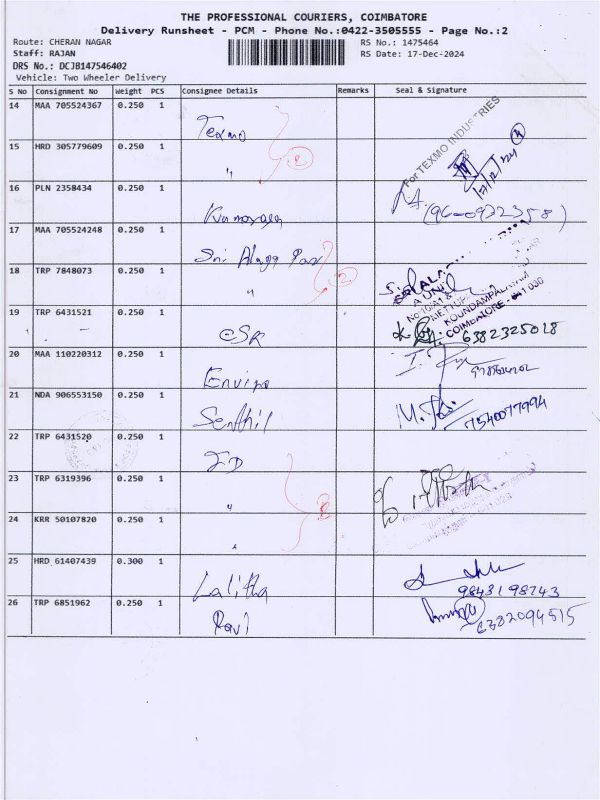 THE PROFESSIONAL COURIERS, COIMBATORE
Delivery Runsheet - PCM - Phone No.:0422-3505555 - Page No.:2
Route: CHERAN NAGAR
RS No.: 1475464
Staff: RAJAN
RS Date: 17-Dec-2024
DRS No.: DCJB147546402
Vehicle: Two Wheeler Delivery
S No Consignment No Weight PCS Consignee Details Remarks Seal & Signature
14 MAA 705524367 0.250 1 Texmo
For TEXMO INDUSTRIES
17/12/24
15 HRD 305779609 0.250 1 "
16 PLN 2358434 0.250 1
17 MAA 705524248 0.250 1 Sri
18 TRP 7848073 0.250 1 "
KOUNDAMPALAYAM
COIMBATORE - 641 030
19 TRP 6431521 0.250 1 CSR 6382325018
20 MAA 110220312 0.250 1 Enviro
21 NDA 906553150 0.250 1 Senthil 7540077994
22 TRP 6431520 0.250 1 ID
23 TRP 6319396 0.250 1 "
24 KRR 50107820 0.250 1 "
25 HRD 61407439 0.300 1 Lalitha
9843198743
26 TRP 6851962 0.250 1 Ravi 6382094515